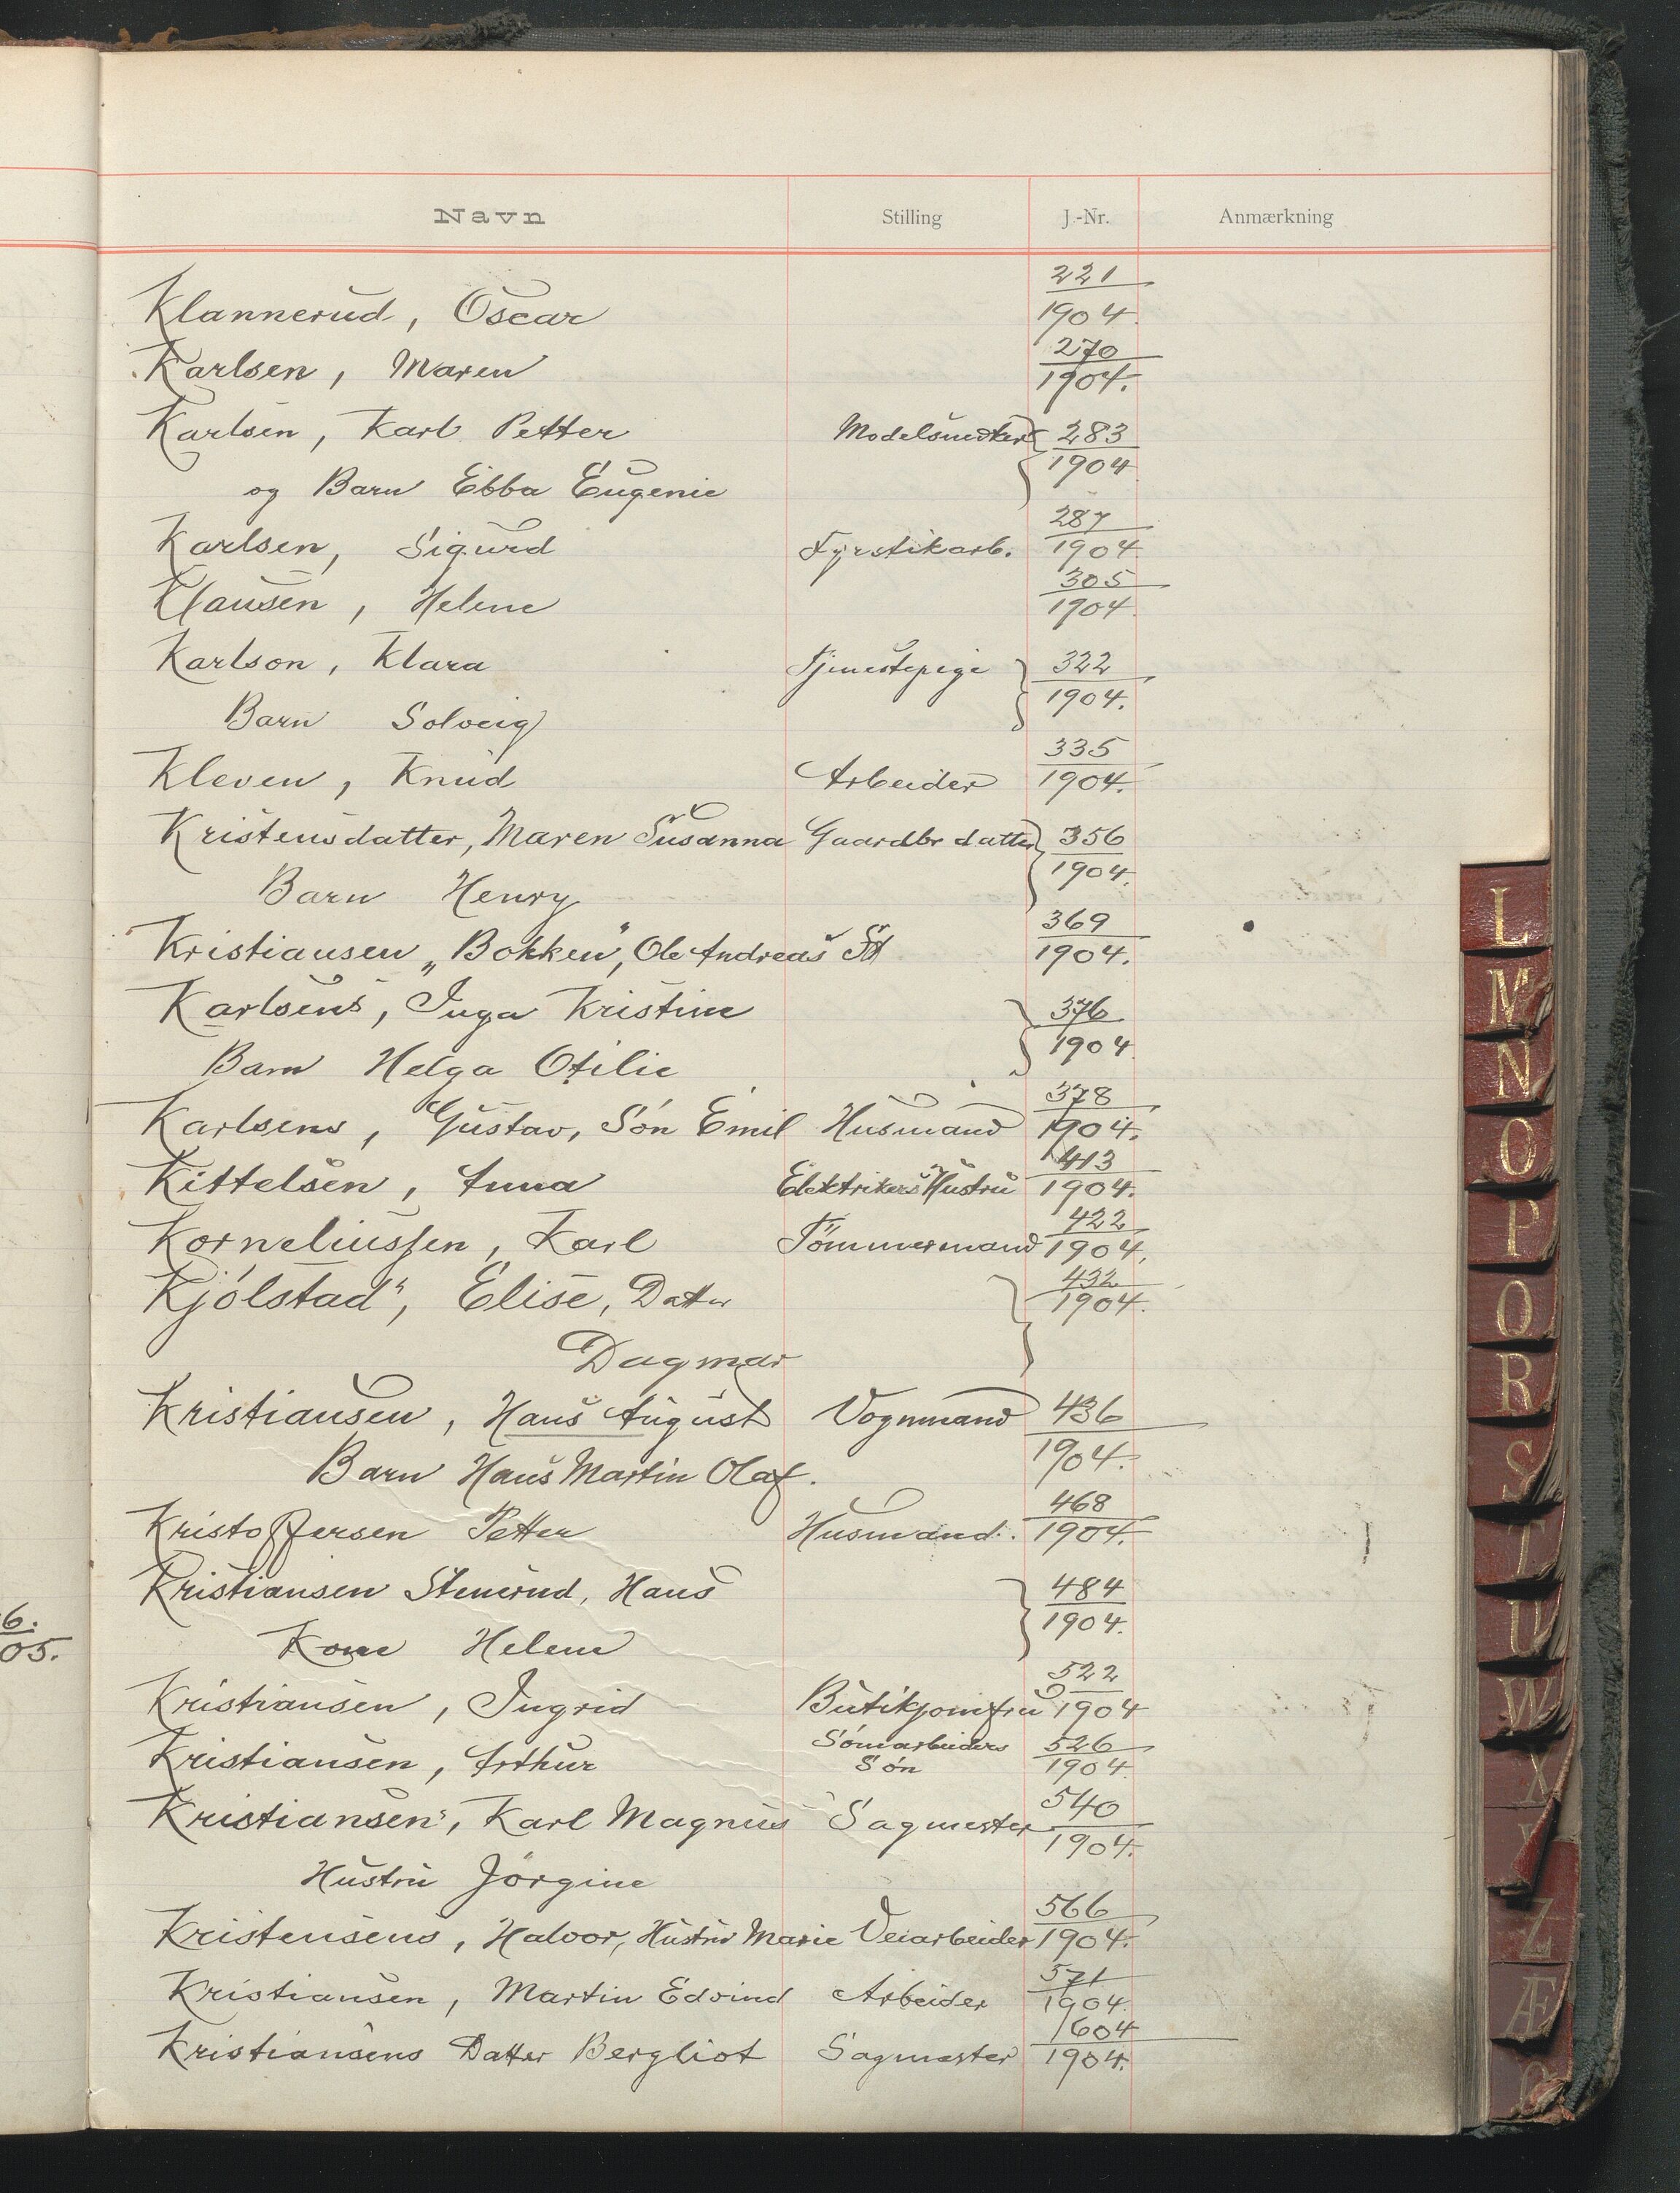 Navn Stilling J.-Nr. Anmærkning
Klannerud, Oscar 221/1904
Karlsen, Maren 270/1904.
Karlsen, Karl Petter Modelsnedker 283/1904
og Barn Ebba Eugenie
Karlsen, Sigurd Fyrstikarb. 287/1904
Klausen, Helene 305/1904
Karlson, Klara Tjenestepige 322/1904.
Barn Solveig
Kleven, Knud Arbeider 335/1904.
Kristensdatter, Maren Susanna Gaardbr datter 356/1904.
Barn Henry
Kristiansen „Bokken", Ole Andreas 369/1904.
Karlsens, Inga Kristine 376/1904
Barn Helga Otilie
Karlsens, Gustav, Søn Emil Husmand 378/1904.
Kittelsen, Anna Elektrikers Hustru 413/1904.
Korneliussen, Karl Tömmermand 422/1904.
Kjólstad", Elise, Datter 432/1904.
Dagmar
Kristiansen, Hans August Vognmand 436/1904.
Barn Hans Martin Olaf.
Kristoffersen Petter Husmand. 468/1904.
Kristiansen Stenerud, Hans 484/1904.
Kone Helene
Kristiansen, Ingrid Butikjomfru 522/1904
Kristiansen, Arthur Sömarbeiders Søn 526/1904
Kristiansen", Karl Magnus Sagmester 540/1904.
Hustru Jörgine
Kristensens, Halvor, Hustru Marie Veiarbeider 566/1904.
Kristiansen, Martin Edvind Arbeider 571/1904
Kristiansens Datter Bergliot Sagmester 604/1904.
6.
05.
L
M
N
O
P
Q
R
S
T
U
W
X
Y
Z
Æ